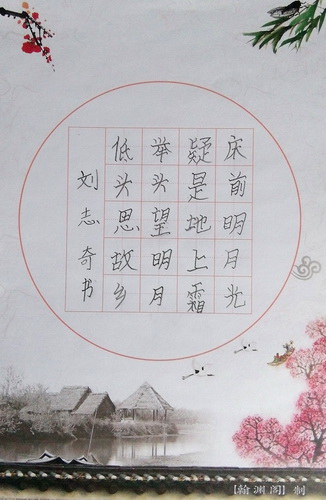 床前明月光
疑是地上霜
举头望明月
低头思故乡
刘志奇书
【翰渊阁】制